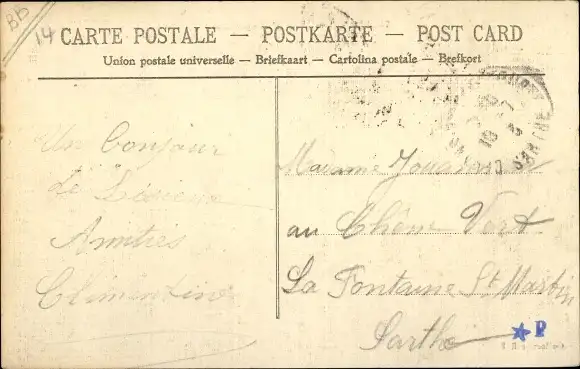 BB
14
CARTE POSTALE — POSTKARTE — POST CARD
Union postale universelle — Briefkaart — Cartolina postale — Brefkort
Un bonjour
de Lisieux
Amitiés
Clémentine
Madame
au Chêne Vert
La Fontaine St Martin
Sarthe
★ P